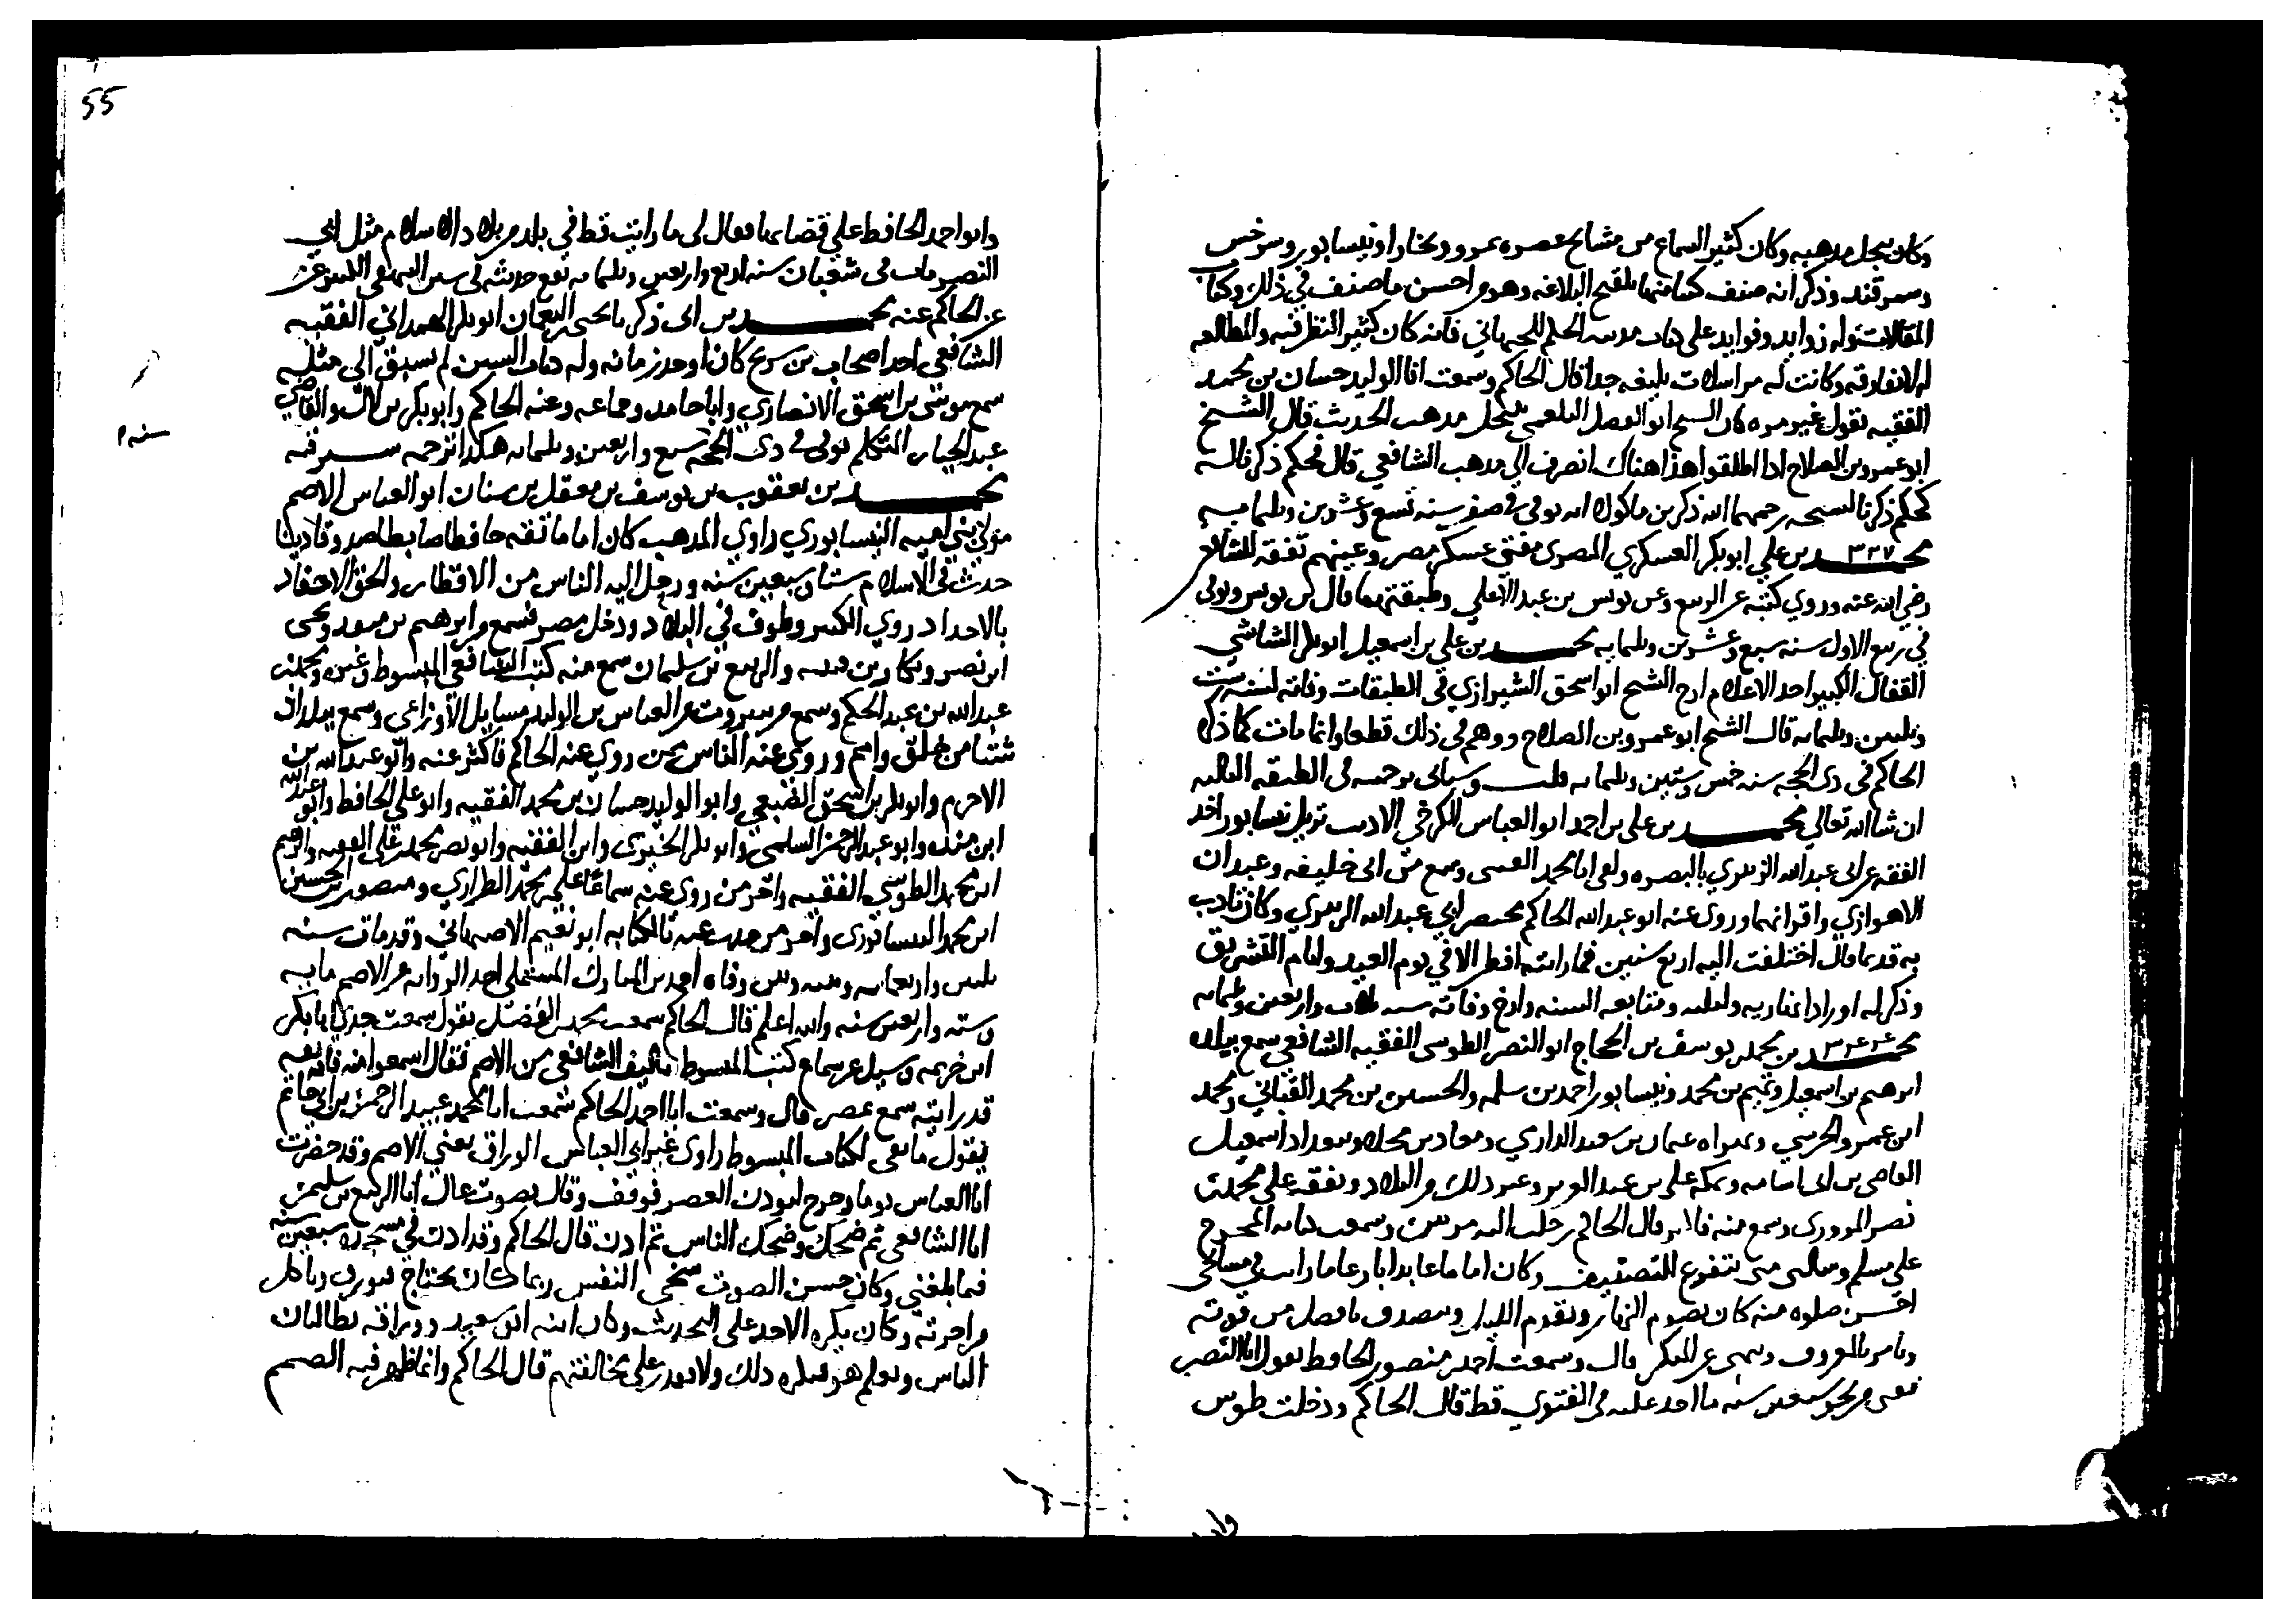 وكان ينتحل مذهبه وكان كثير السماع من مشايخ عصره بمرو وبخارا ونيسابور وسرخس
وسمرقند وذكر انه صنف كتبا منها تلقيح البلاغه وهو من احسن ما صنف في ذلك وكتاب
المقالات وله زوايد وفوايد على كتاب الحلم للجيهاني فانه كان كثير النظر فيه والمطالعه
له لا يفارقه وكانت له مراسلات بليغه جدا قال الحاكم وسمعت ابا الوليد حسان بن محمد
الفقيه يقول غير مره كان الشيخ ابو الفضل البلعمي ينتحل مذهب الحديث قال الشيخ
ابو عمرو بن الصلاح اذا اطلقوا هذا هناك انصرف الى مذهب الشافعي قال
رحمهما الله ذكر بن ماكولا انه توفي في صفر سنه تسع وعشرين وثلثمايه
محمد ٣٢٧ بن علي ابو بكر العسكري المصرى مفتي عسكر مصر وعينهم تفقه للشافعي
رضي الله عنه وروي كتبه عن الربيع وعن يونس بن عبد الاعلي وطبقتهما قال بن يونس وتوفي
في ربيع الاول سنه سبع وعشرين وثلثمايه محمد بن علي بن اسمعيل ابو بكر الشاشي
القفال الكبير احد الاعلام ارخ الشيخ ابو اسحق الشيرازي في الطبقات وفاته لسنه ست
وثلثين وثلثمايه قال الشيخ ابو عمرو بن الصلاح ووهم في ذلك قطعا وانما مات كما ذكره
الحاكم في ذى الحجه سنه خمس وستين وثلثمايه قلت وسياتي ترجمته في الطبقه الثالثه
ان شا الله تعالي محمد بن علي بن احمد ابو العباس الكرخي الاديب نزيل نيسابور اخذ
الفقه عن ابي عبد الله الزبيري بالبصره ولقي ابا محمد وسمع من ابى خليفه وعبدان
الاهوازي واقرانهما وروى عنه ابو عبد الله الحاكم مختصر ابي عبد الله الزبيري وكان تادب
به قديما قال اختلفت اليه اربع سنين فما رايته افطر الا في يوم العيد وايام التشريق
وذكر له اورادا نهاريه وليليه ومتابعه السنه وارخ وفاته سنه ثلاث واربعين وثلثمايه
محمد ٣٤٤ بن محمد بن يوسف بن الحجاج ابو النضر الطوسى الفقيه الشافعي سمع ببلده
ابرهيم بن اسمعيل وتميم بن محمد ونيسابور احمد بن سلمه والحسين بن محمد القباني ومحمد
ابن عمرو الحرسي وبهراه عثمان بن سعيد الدارمي ومعاذ بن نجده وببغداد اسمعيل
القاضي بن ابى اسامه وبمكه علي بن عبد العزيز وغير ذلك من البلاد وتفقه على محمد بن
نصر المروزي وسمع منه قال الحاكم رحلت اليه مرتين وسمعت كتابه المخرج
علي مسلم وسالته متى يتفرغ للتصنيف وكان اماما عابدا بارعا ما رايت في مشايخي
احسن صلوه منه كان يصوم النهار ويقوم الليل ويتصدق بما فضل من قوته
ويامر بالمعروف وينهى عن المنكر قال وسمعت احمد بن منصور الحافظ يقول ابو النصر
يفتي من نحو سبعين سنه ما اخذ عليه في الفتوى قط قال الحاكم ودخلت طوس
55
وابو احمد الحافظ علي قضايها فقال لي ما رايت قط في بلد من بلاد الاسلام مثل ابي
النصر مات في شعبان سنه اربع واربعين وثلثمايه يقع حديثه في سنن البيهقي الكبير عن
عن الحاكم عنه محمد بن ابى زكريا يحيى بن النعمان ابو بكر الهمداني الفقيه
الشافعي احد اصحاب بن سريج كان اوحد زمانه وله كتاب السنن لم يسبق الى مثله
سمع موسى بن اسحق الانصاري وابا حامد وجماعه وعنه الحاكم وابو بكر بن لال والقاضي
عبد الجبار المتكلم توفي في ذى الحجه سبع واربعين وثلثمايه هكذا ترجمه شيرويه
سنه ١
محمد بن يعقوب بن يوسف بن معقل بن سنان ابو العباس الاصم
مولى بني اميه النيسابوري راوي المذهب كان اماما ثقه حافظا ضابطا صدوقا دينا
حدث في الاسلام ستا وسبعين سنه ورحل اليه الناس من الاقطار والحق الاحفاد
بالاجداد روي الكثير وطوف في البلاد ودخل مصر فسمع من ابرهيم بن ويحيى
ابن نصر وبكار بن قتيبه والربيع بن سليمان سمع منه كتب الشافعي المبسوط وغيره ومحمد بن
عبد الله بن عبد الحكم وسمع من بيروت من العباس بن الوليد مسايل الاوزاعي وسمع ببلدان
شتا من خلق وامم وروى عنه الناس ممن روى عنه الحاكم فاكثر عنه وابو عبد الله بن
الاخرم وابو بكر بن اسحق الضبعي وابو الوليد حسان بن محمد الفقيه وابو علي الحافظ وابو عبد الله
ابن منده وابو عبد الرحمن السلمي وابو بكر الحيري وابن الفقيه وابو نصر محمد بن علي الفقيه وابرهيم
ابن محمد الطوسي الفقيه واخر من روى عنه سماعا علي بن محمد الطرازي ومنصور بن الحسين
ابن محمد النيسابوري واخر من حدث عنه بالكتابه ابو نعيم الاصبهاني وقد مات سنه
ثلثين واربعمايه وبينه وبين وفاه احمد بن المبارك المستملي احد الرواه عن الاصم مايه
وسته واربعين سنه والله اعلم قال الحاكم سمعت محمد بن الفضل يقول سمعت جدي ابا بكر
ابن خزيمه وسيل عن سماع كتب المبسوط تاليف الشافعي من الاصم فقال اسمعوا منه فانه ثقه
قد رايته سمع بمصر قال وسمعت ابا احمد الحاكم سمعت ابا محمد عبد الرحمن بن ابي حاتم
يقول ما بقى لكتاب المبسوط راوي غير ابي العباس الوراق يعني الاصم وقد حضرت
ابا العباس يوما وخرج ليوذن العصر فوقف وقال بصوت عال انا الربيع بن سليمن
انا الشافعي ثم ضحك وضحك الناس ثم اذن قال الحاكم وقد اذن في مسجده سبعين سنه
فيما بلغني وكان حسن الصوت سخي النفس ربما كان يحتاج فيورق وياكل
من اجرته وكان يكره الاخذ على التحديث وكان ابنه ابو سعيد ووراقه يطالبان
الناس ويعلم هو فيكره ذلك ولا يقدر علي مخالفتهم قال الحاكم وانما ظهر فيه الصمم